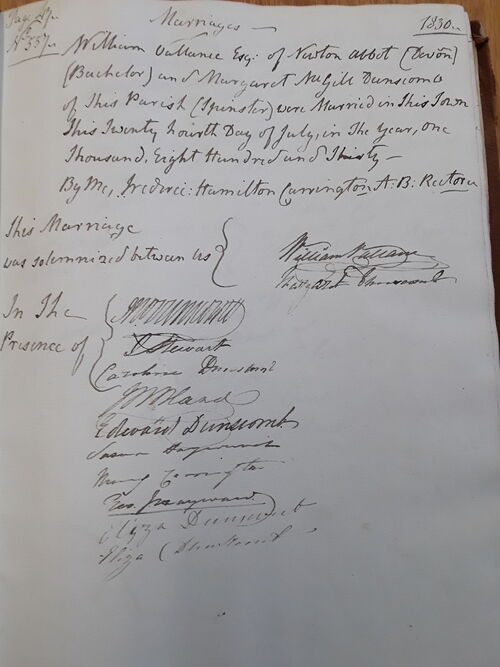 Marriages 1830
No 557
William Vallance Esq: of Newton Abbot (Devon)
(Bachelor) and Margaret McGill Dunscomb
of This Parish (Spinster) were Married in This Town
This Twenty fourth Day of July, in The year, one
Thousand, Eight Hundred and Thirty
By Me, Frederic: Hamilton Carrington A: B: Rector
This Marriage
was solemnized between us
William Vallance
Margaret Dunscomb
In The
Presence of
Stewart
Caroline Dunscomb
Edward Dunscomb
Carrington
Hayward
Eliza Dunscomb
Eliza